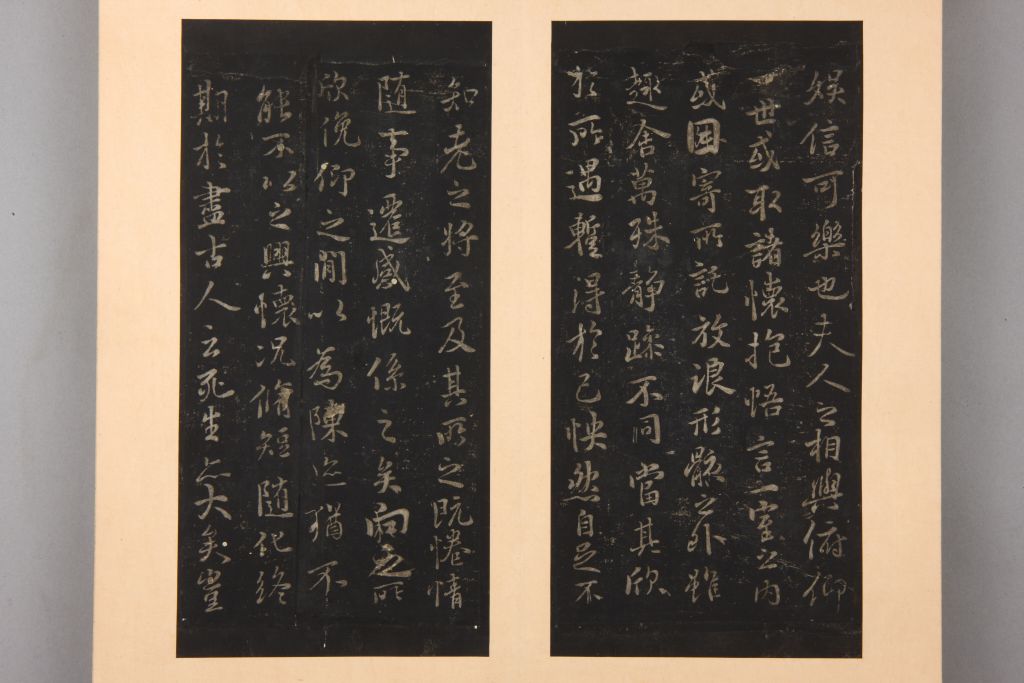 娛信可樂也夫人之相與俯仰
一世或取諸懷抱悟言一室之內
或因寄所託放浪形骸之外雖
趣舍萬殊靜躁不同當其欣
於所遇暫得於己怏然自足不
知老之將至及其所之既惓情
随事遷感慨係之矣向之所
欣俛仰之閒以為陳迹猶不
能不以之興懷況脩短随化終
期於盡古人云死生亦大矣豈